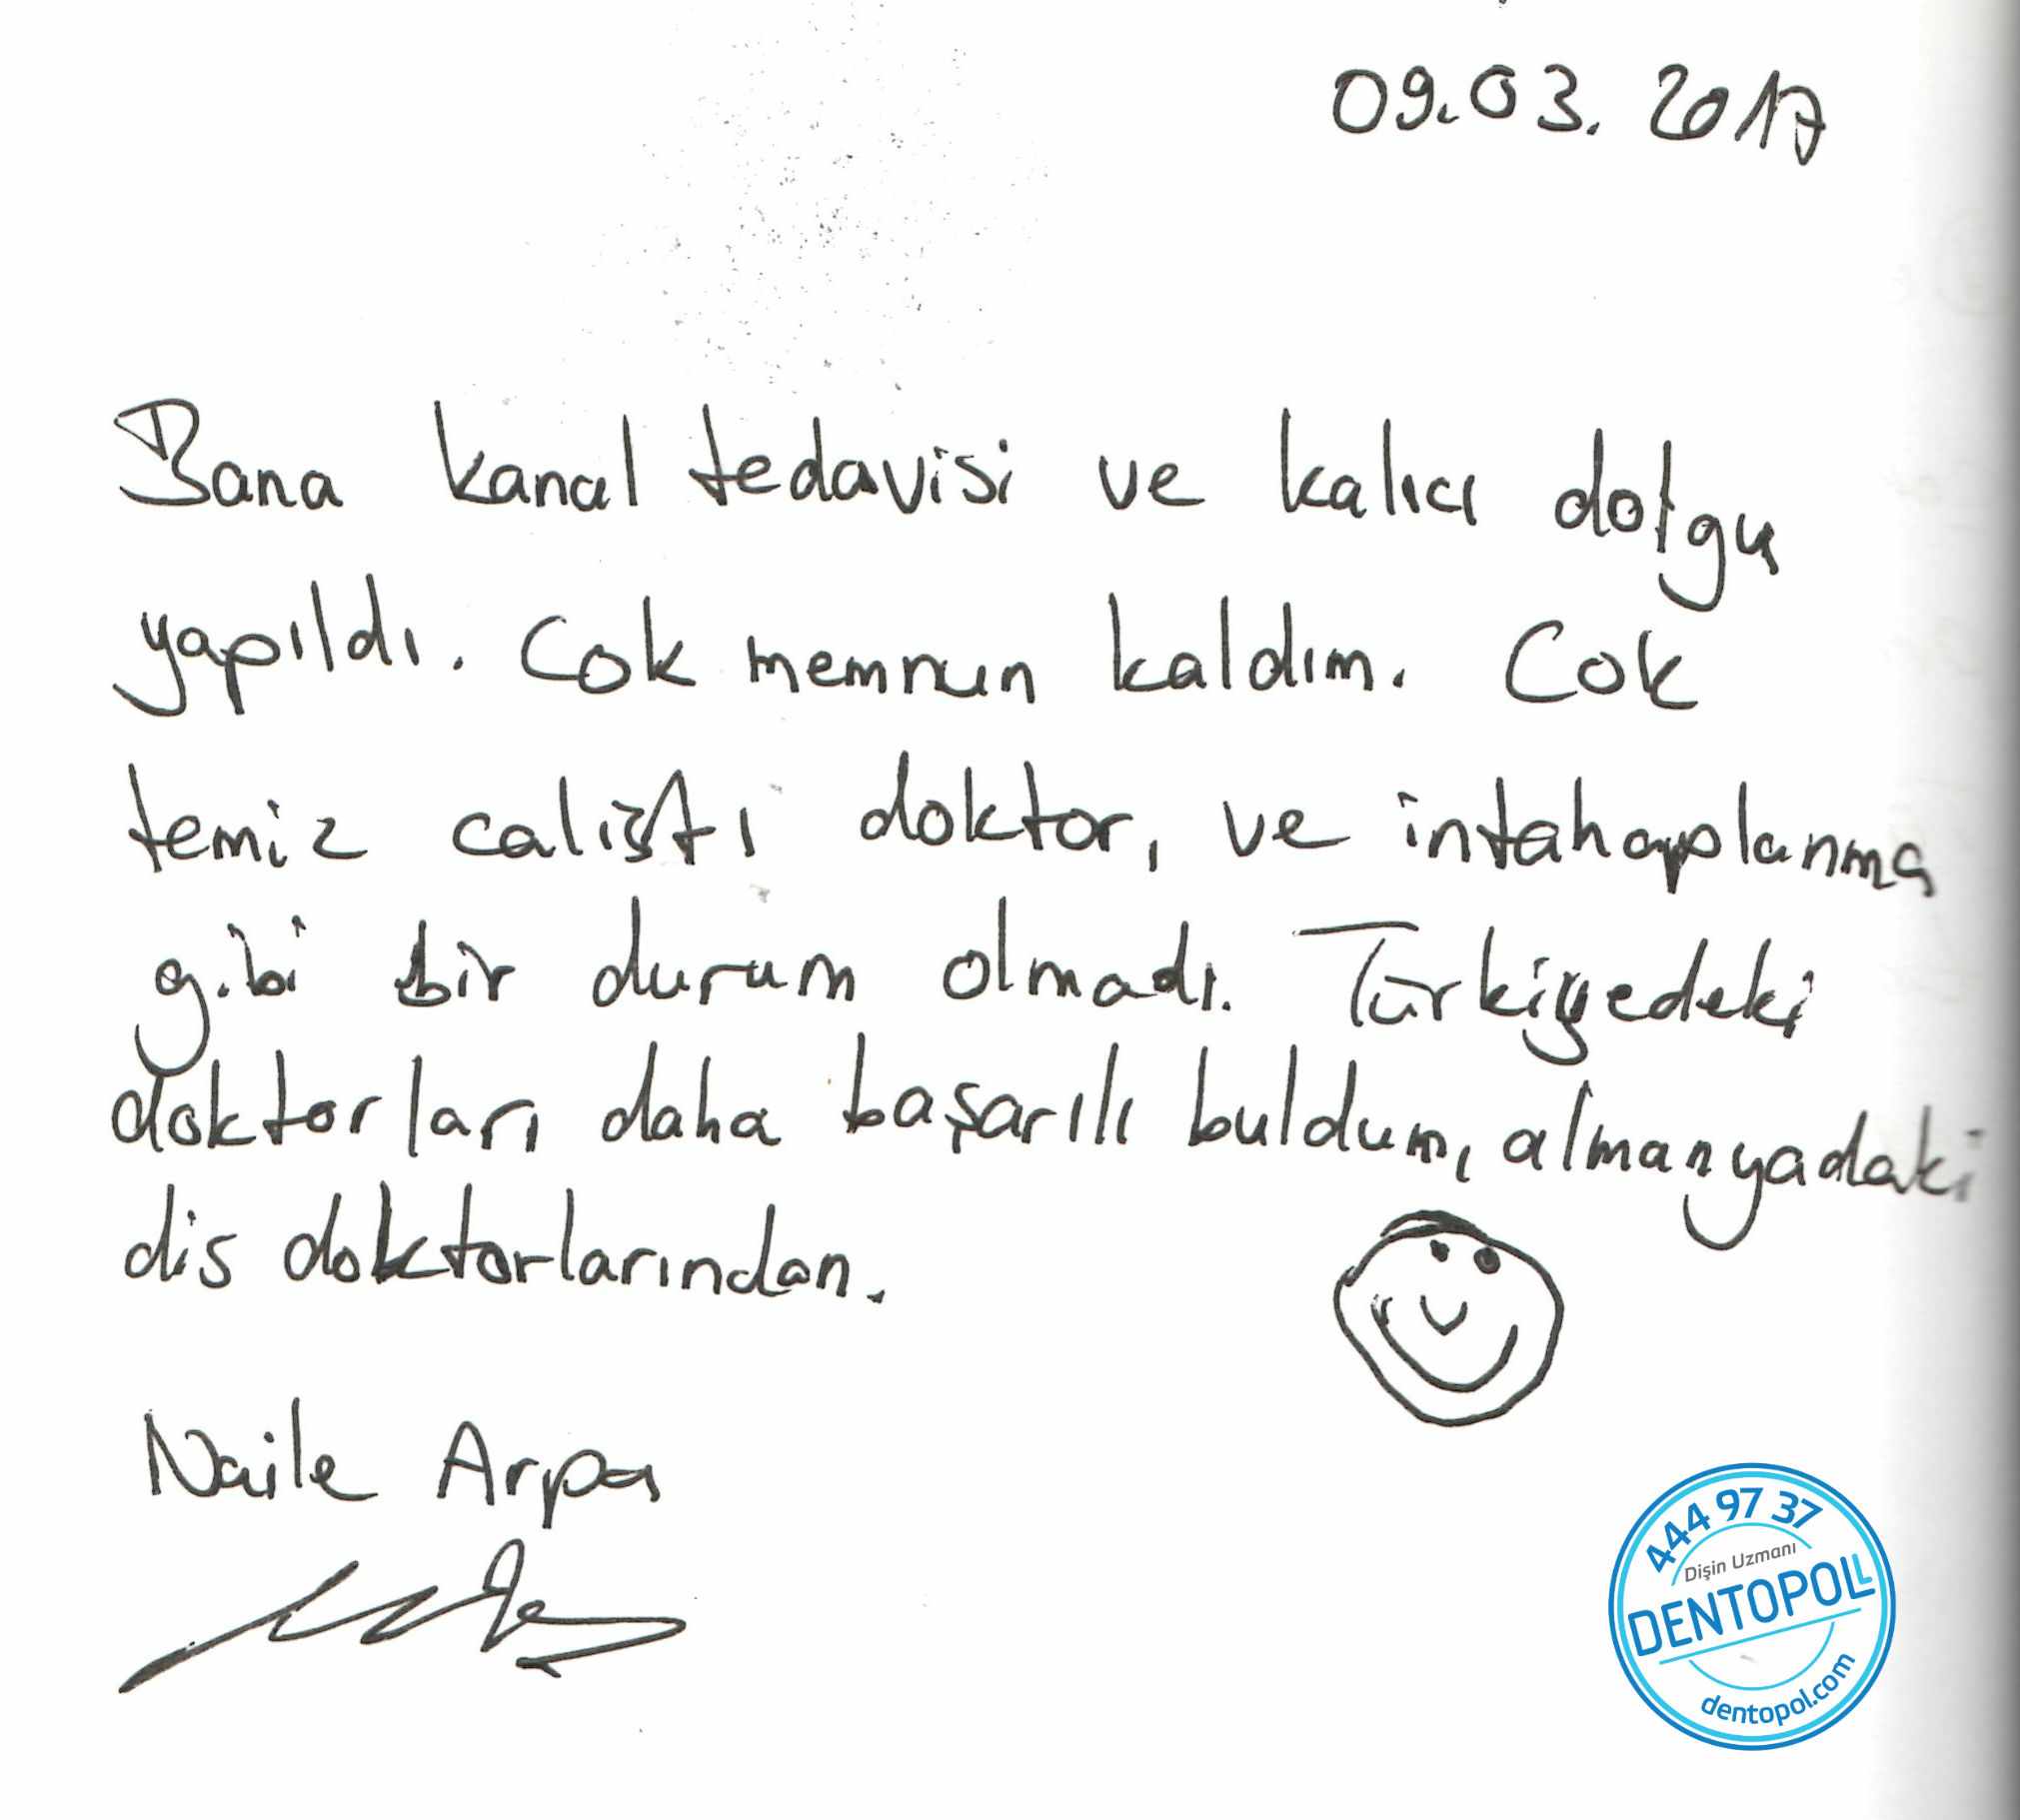 09.03.2017
Bana kanal tedavisi ve kalıcı dolgu
yapıldı. Cok memnun kaldım. Cok
temiz calıştı doktor, ve intahaplanma
gibi bir durum olmadı. Türkiyedeki
doktorları daha başarılı buldum, almanyadaki
dis doktorlarından.
Naile Arpa
444 97 37
Dişin Uzmanı
DENTOPOL
dentopol.com